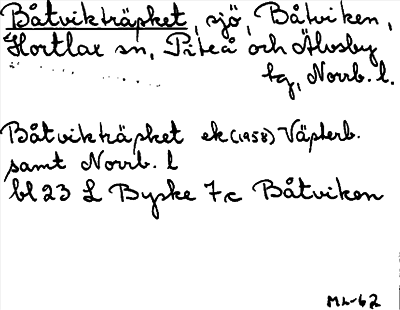 Båtvikträpket, sjö, Båtviken,
Hortlax sn, Piteå och Älvsby
tg, Norrb. l.
Båtvikträpket ek (1958) Väpterb.
samt Norrb. l
bl 23 L Byske 7c Båtviken
ML-62